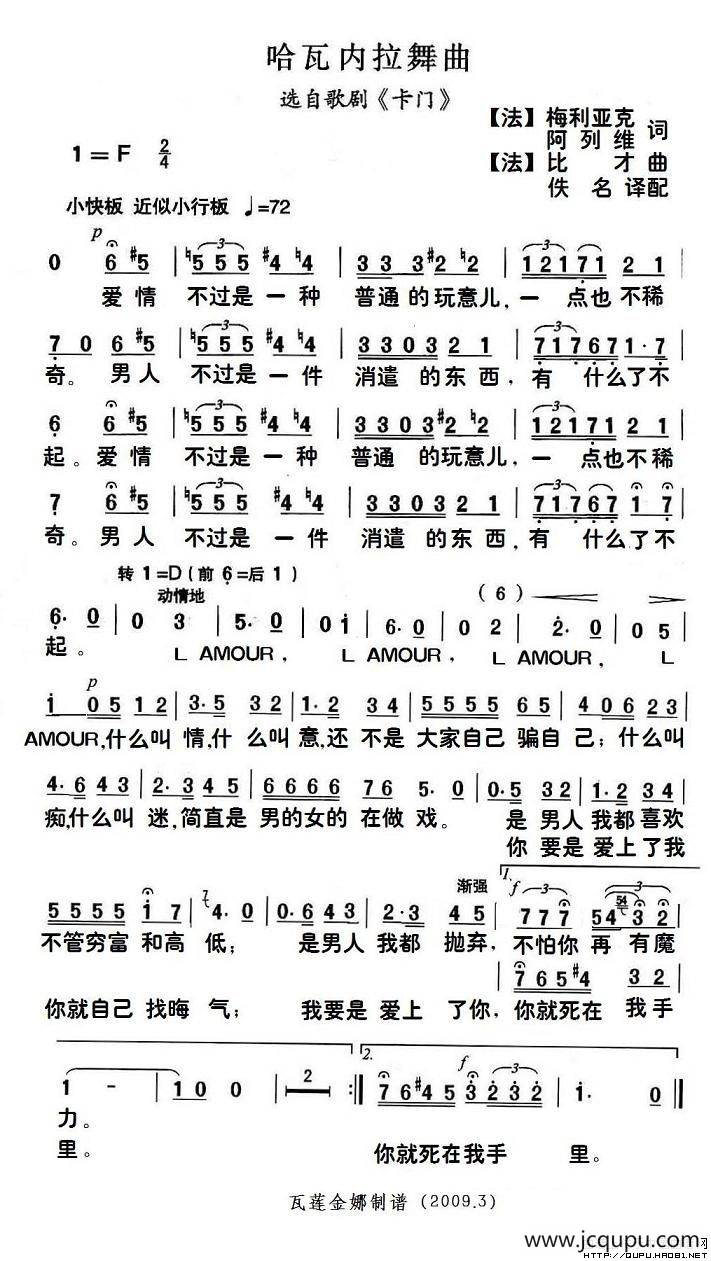 哈瓦内拉舞曲
选自歌剧《卡门》
【法】梅利亚克
阿列维 词
【法】比才曲
佚名译配
1=F 2/4
小快板 近似小行板 ♩=72
p
0 6 #5 | ♮5 5 5 #4 ♮4 | 3 3 3 #2 ♮2 | 1 2 1 7 1 2 1 |
爱情 不过是一种 普通的玩意儿,一 点也不稀
7 0 6 #5 | ♮5 5 5 #4 ♮4 | 3 3 0 3 2 1 | 7 1 7 6 7 1· 7 |
奇。男人 不过是一件 消遣 的东西,有 什么了不
6 6 #5 | ♮5 5 5 #4 ♮4 | 3 3 0 3 #2 ♮2 | 1 2 1 7 1 2 1 |
起。爱情 不过是一种 普通 的玩意儿,一 点也不稀
7 6 #5 | ♮5 5 5 #4 ♮4 | 3 3 0 3 2 1 | 7 1 7 6 7 1 7 |
奇。男人 不过是一件 消遣 的东西,有 什么了不
转 1=D(前 6=后 1)
动情地
(6)
6· 0 | 0 3 | 5· 0 | 0 i | 6· 0 | 0 2 | 2· 0 | 0 5 |
起。 L AMOUR, L AMOUR, L AMOUR, L
p
i 0 5 1 2 | 3· 5 3 2 | 1· 2 3 4 | 5 5 5 5 6 5 | 4 0 6 2 3 |
AMOUR,什么叫 情,什 么叫意,还 不是 大家自己 骗自 己;什么叫
4· 6 4 3 | 2· 3 4 5 | 6 6 6 6 7 6 | 5· 0 | 0· 5 3 2 | 1· 2 3 4 |
痴,什么叫 迷,简直是 男的女的 在做 戏。 是 男人 我都喜欢
你 要是 爱上了我
渐强
1.
f
5 5 5 5 i 7 | 4· 0 | 0· 6 4 3 | 2· 3 4 5 | 7 7 7 5 4 3 2 |
不管穷富 和高 低; 是男人 我都 抛弃,不怕你 再 有魔
7 6 5 #4 3 2 |
你就自己 找晦 气; 我要是 爱上 了你,你就死在 我手
2.
f
1 - | 1 0 0 | 2 :| 7 6 #4 5 3 2 3 2 | 1· 0 |
力。
里。 你就死在我手 里。
瓦莲金娜制谱 (2009.3)
www.jcqupu.com
HTTP://QUPU.HAO81.NET